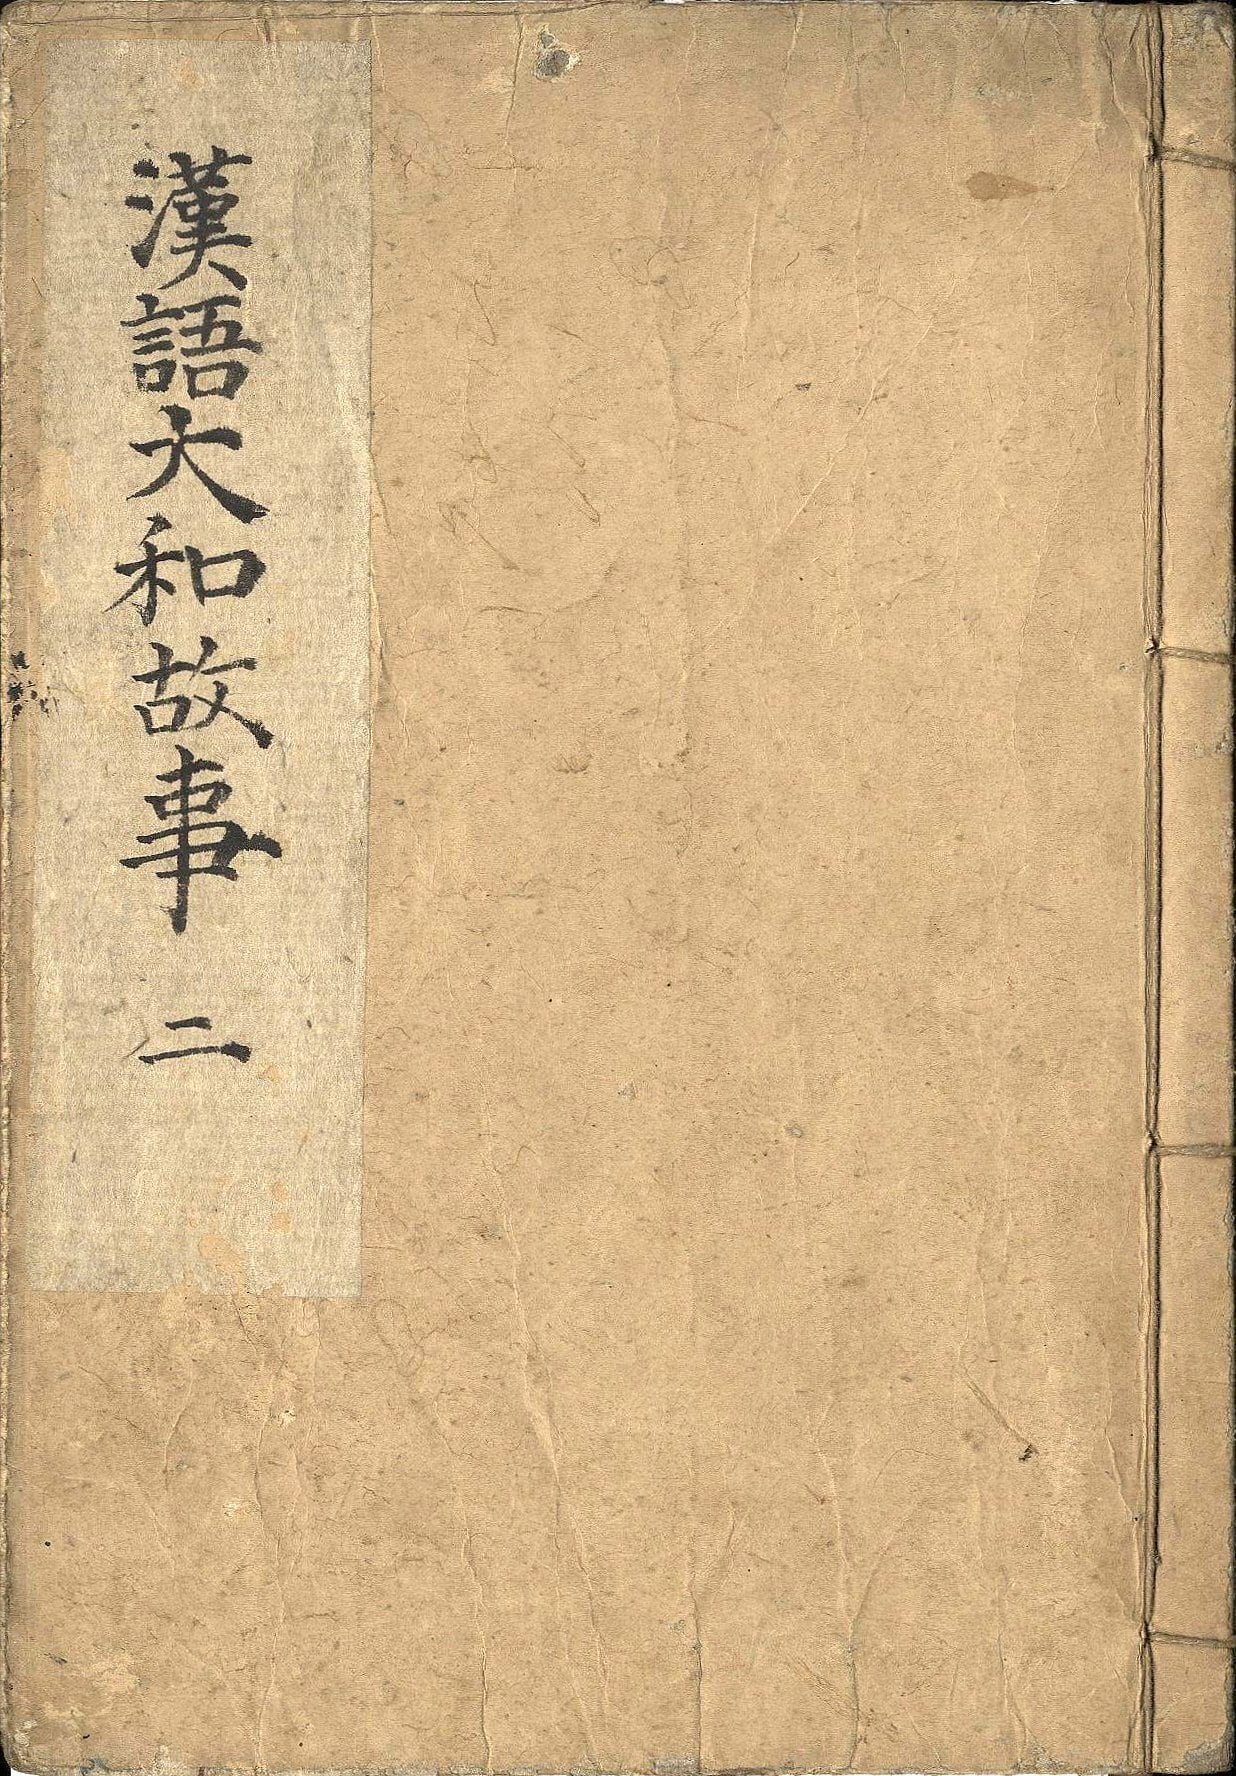 漢語大和故事 二